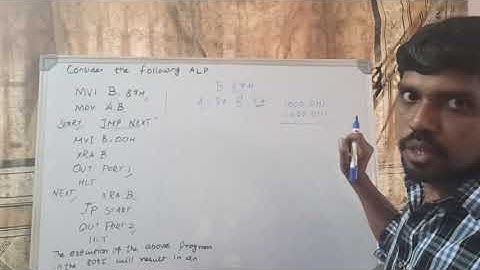 Consider the following ALP
MVI B, 87H
MOV A,B
START: JMP NEXT
MVI B, 00H
XRA B
OUT PORT 1
HLT
NEXT: XRA B
JP START
OUT PORT 2
HLT
The execution of the above program
in the 8085 will result in an
B 87H
A 87
1000 0111
1000 0111